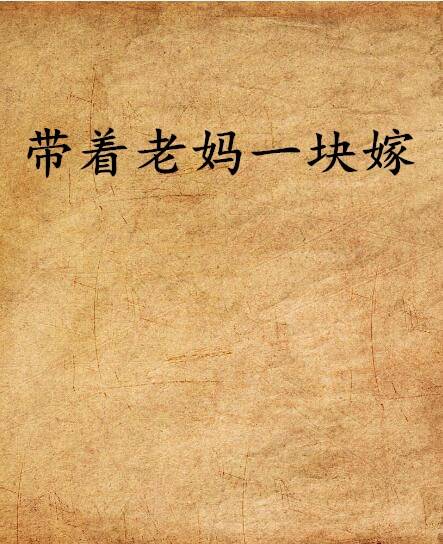 带着老妈一块嫁